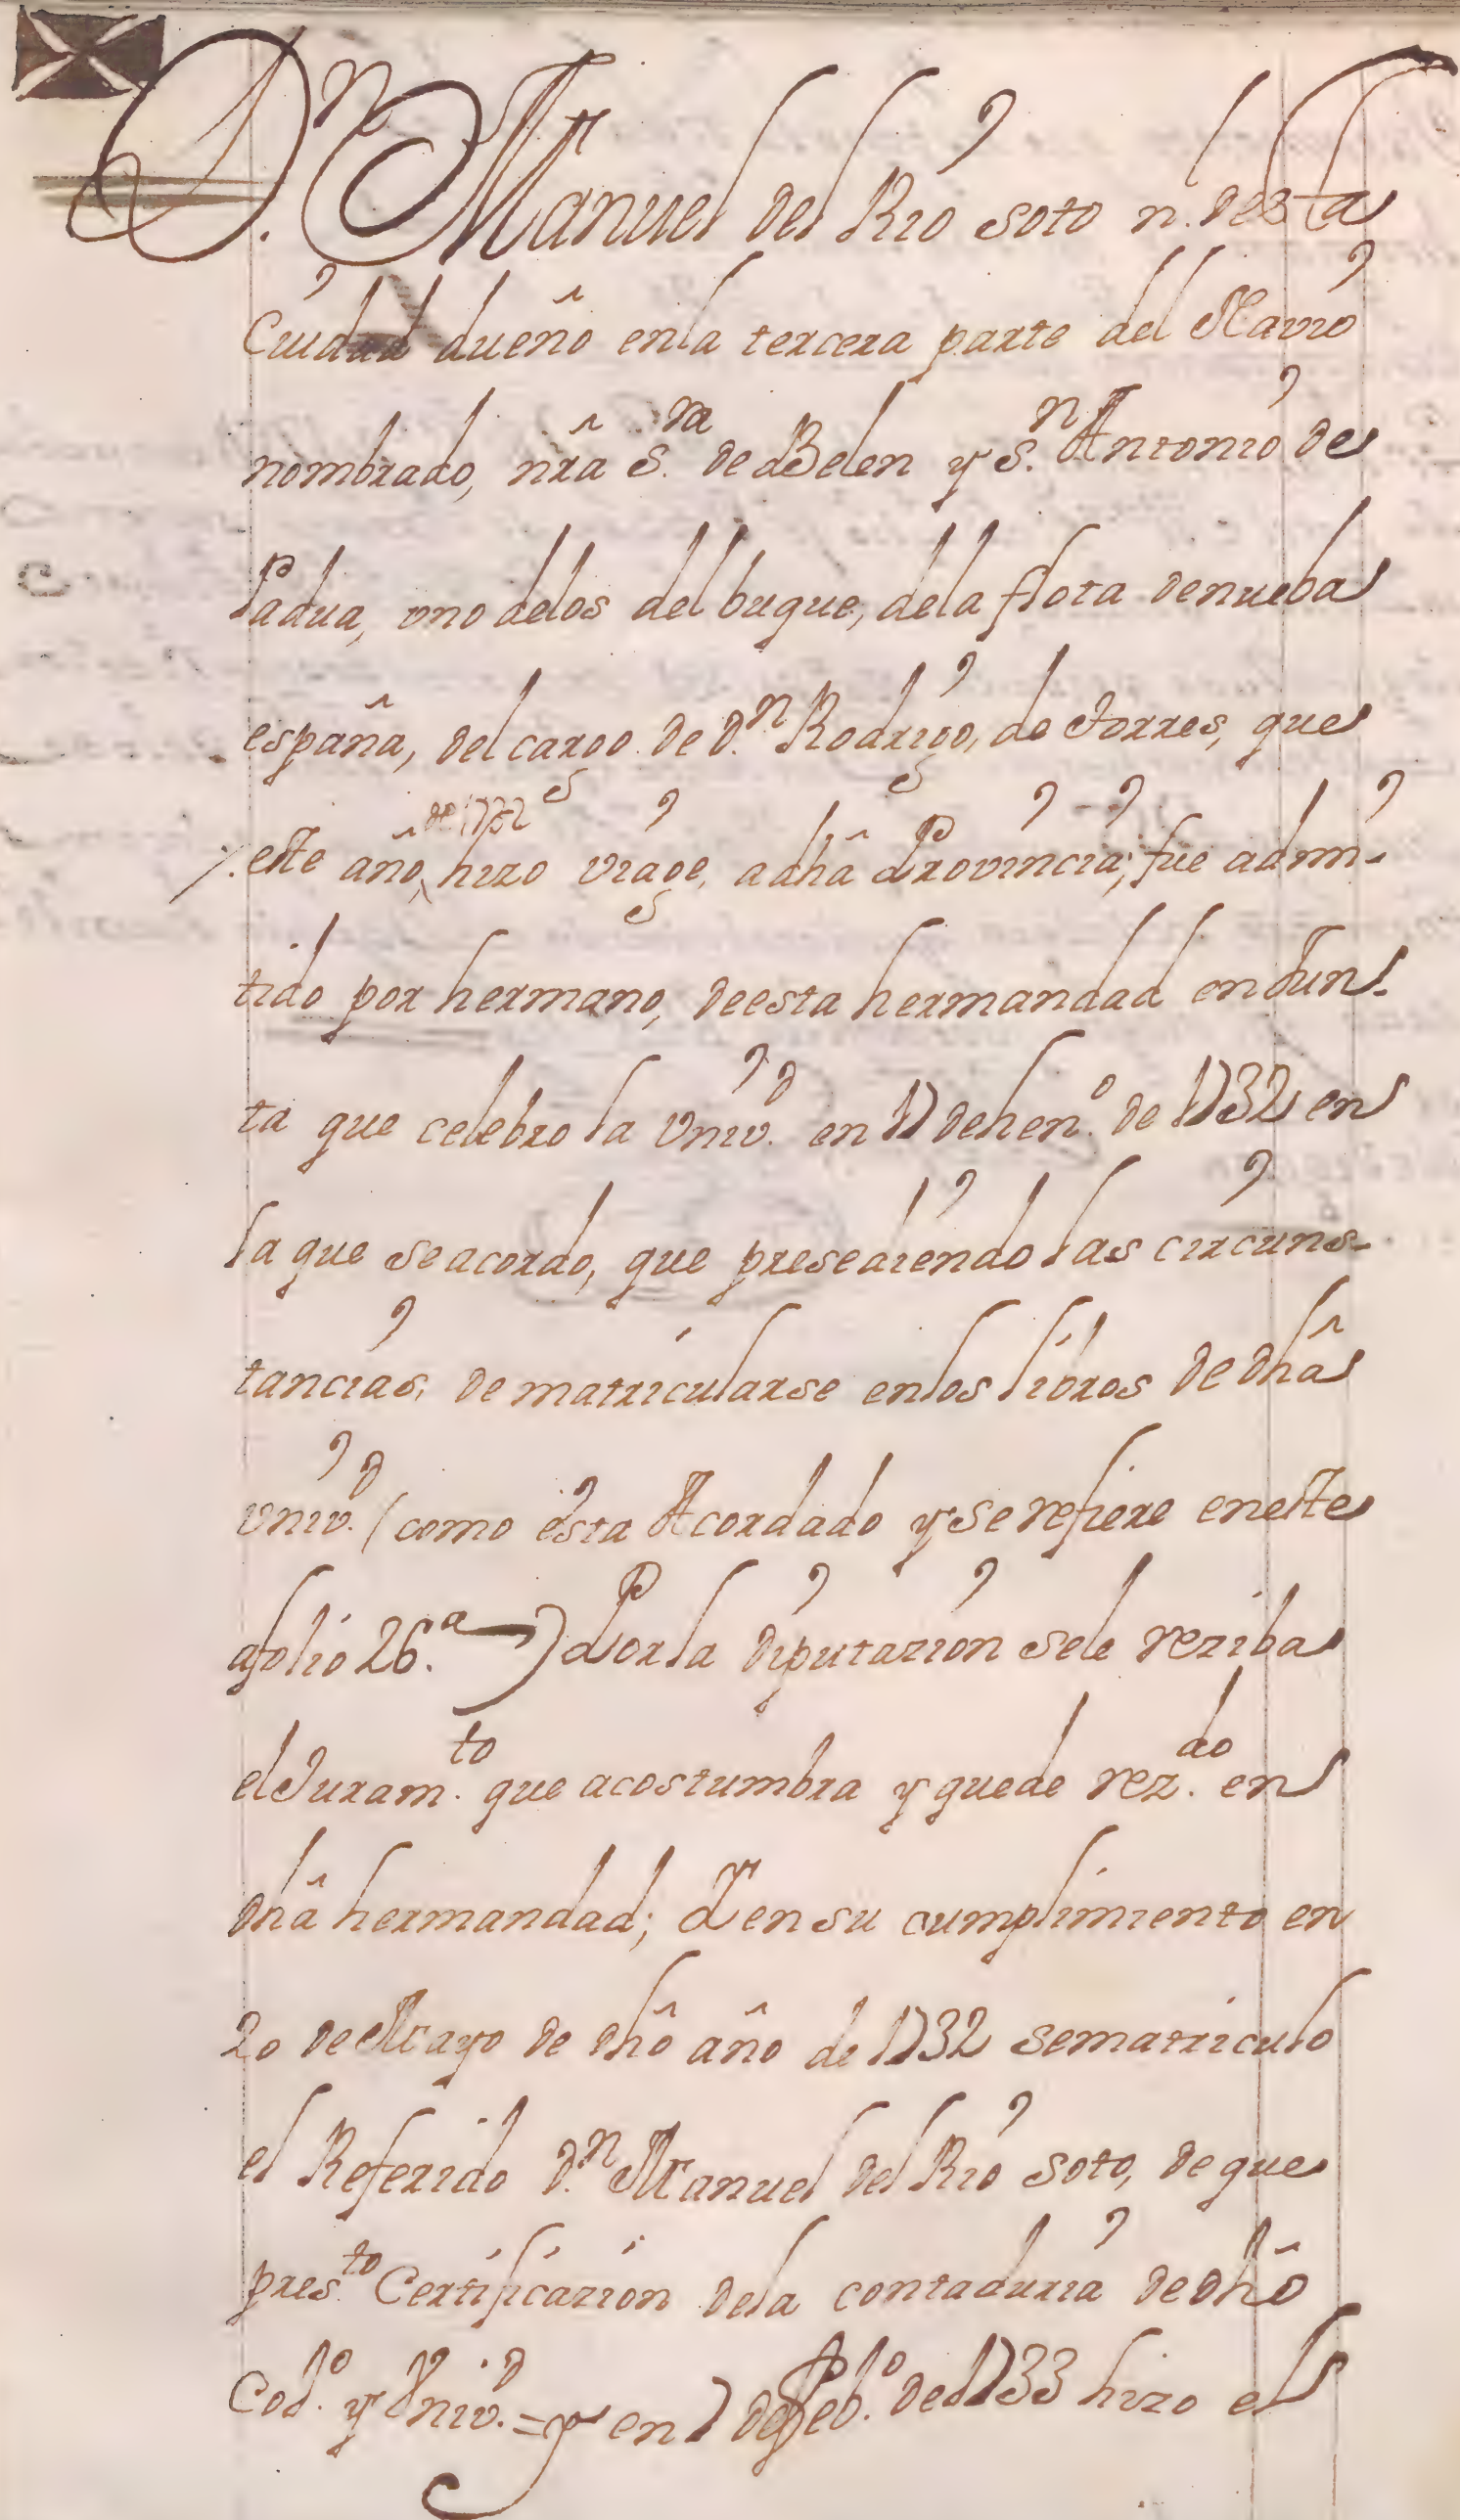 D.ⁿ Manuel del Rio soto n. desta
Ciudad dueño enla tercera parte del Navio
nombrado, nrâ S.ra de Belen y S.n Antonio de
Padua, uno delos del buque, dela flota denueba
españa, del cargo de D.n Rodrigo, de Torres, que
este año, de 1732 hizo viage, a dhâ Provincia; fue admi-
tido por hermano, deesta hermandad en Jun-
ta que celebro la Univ.d en 17 dehen.o de 1732 en
la que se acordo, que presediendo las circuns-
tancias, de matricularse enlos libros de dhâ
univ.d (como esta Acordado y se refiere eneste
afolio 26.a) Por la diputazion sele reziba
el Juram.to que acostumbra y quede rez.do en
dhâ hermandad; Y en su cumplimiento en
20 de Mayo de dhô año de 1732 sematriculo
el Referido D.n Manuel del Rio soto, de que
pres.to Certificazion dela contaduria de dhô
Col.o y Univ.d = y en 7 de Feb.o de 1733 hizo el